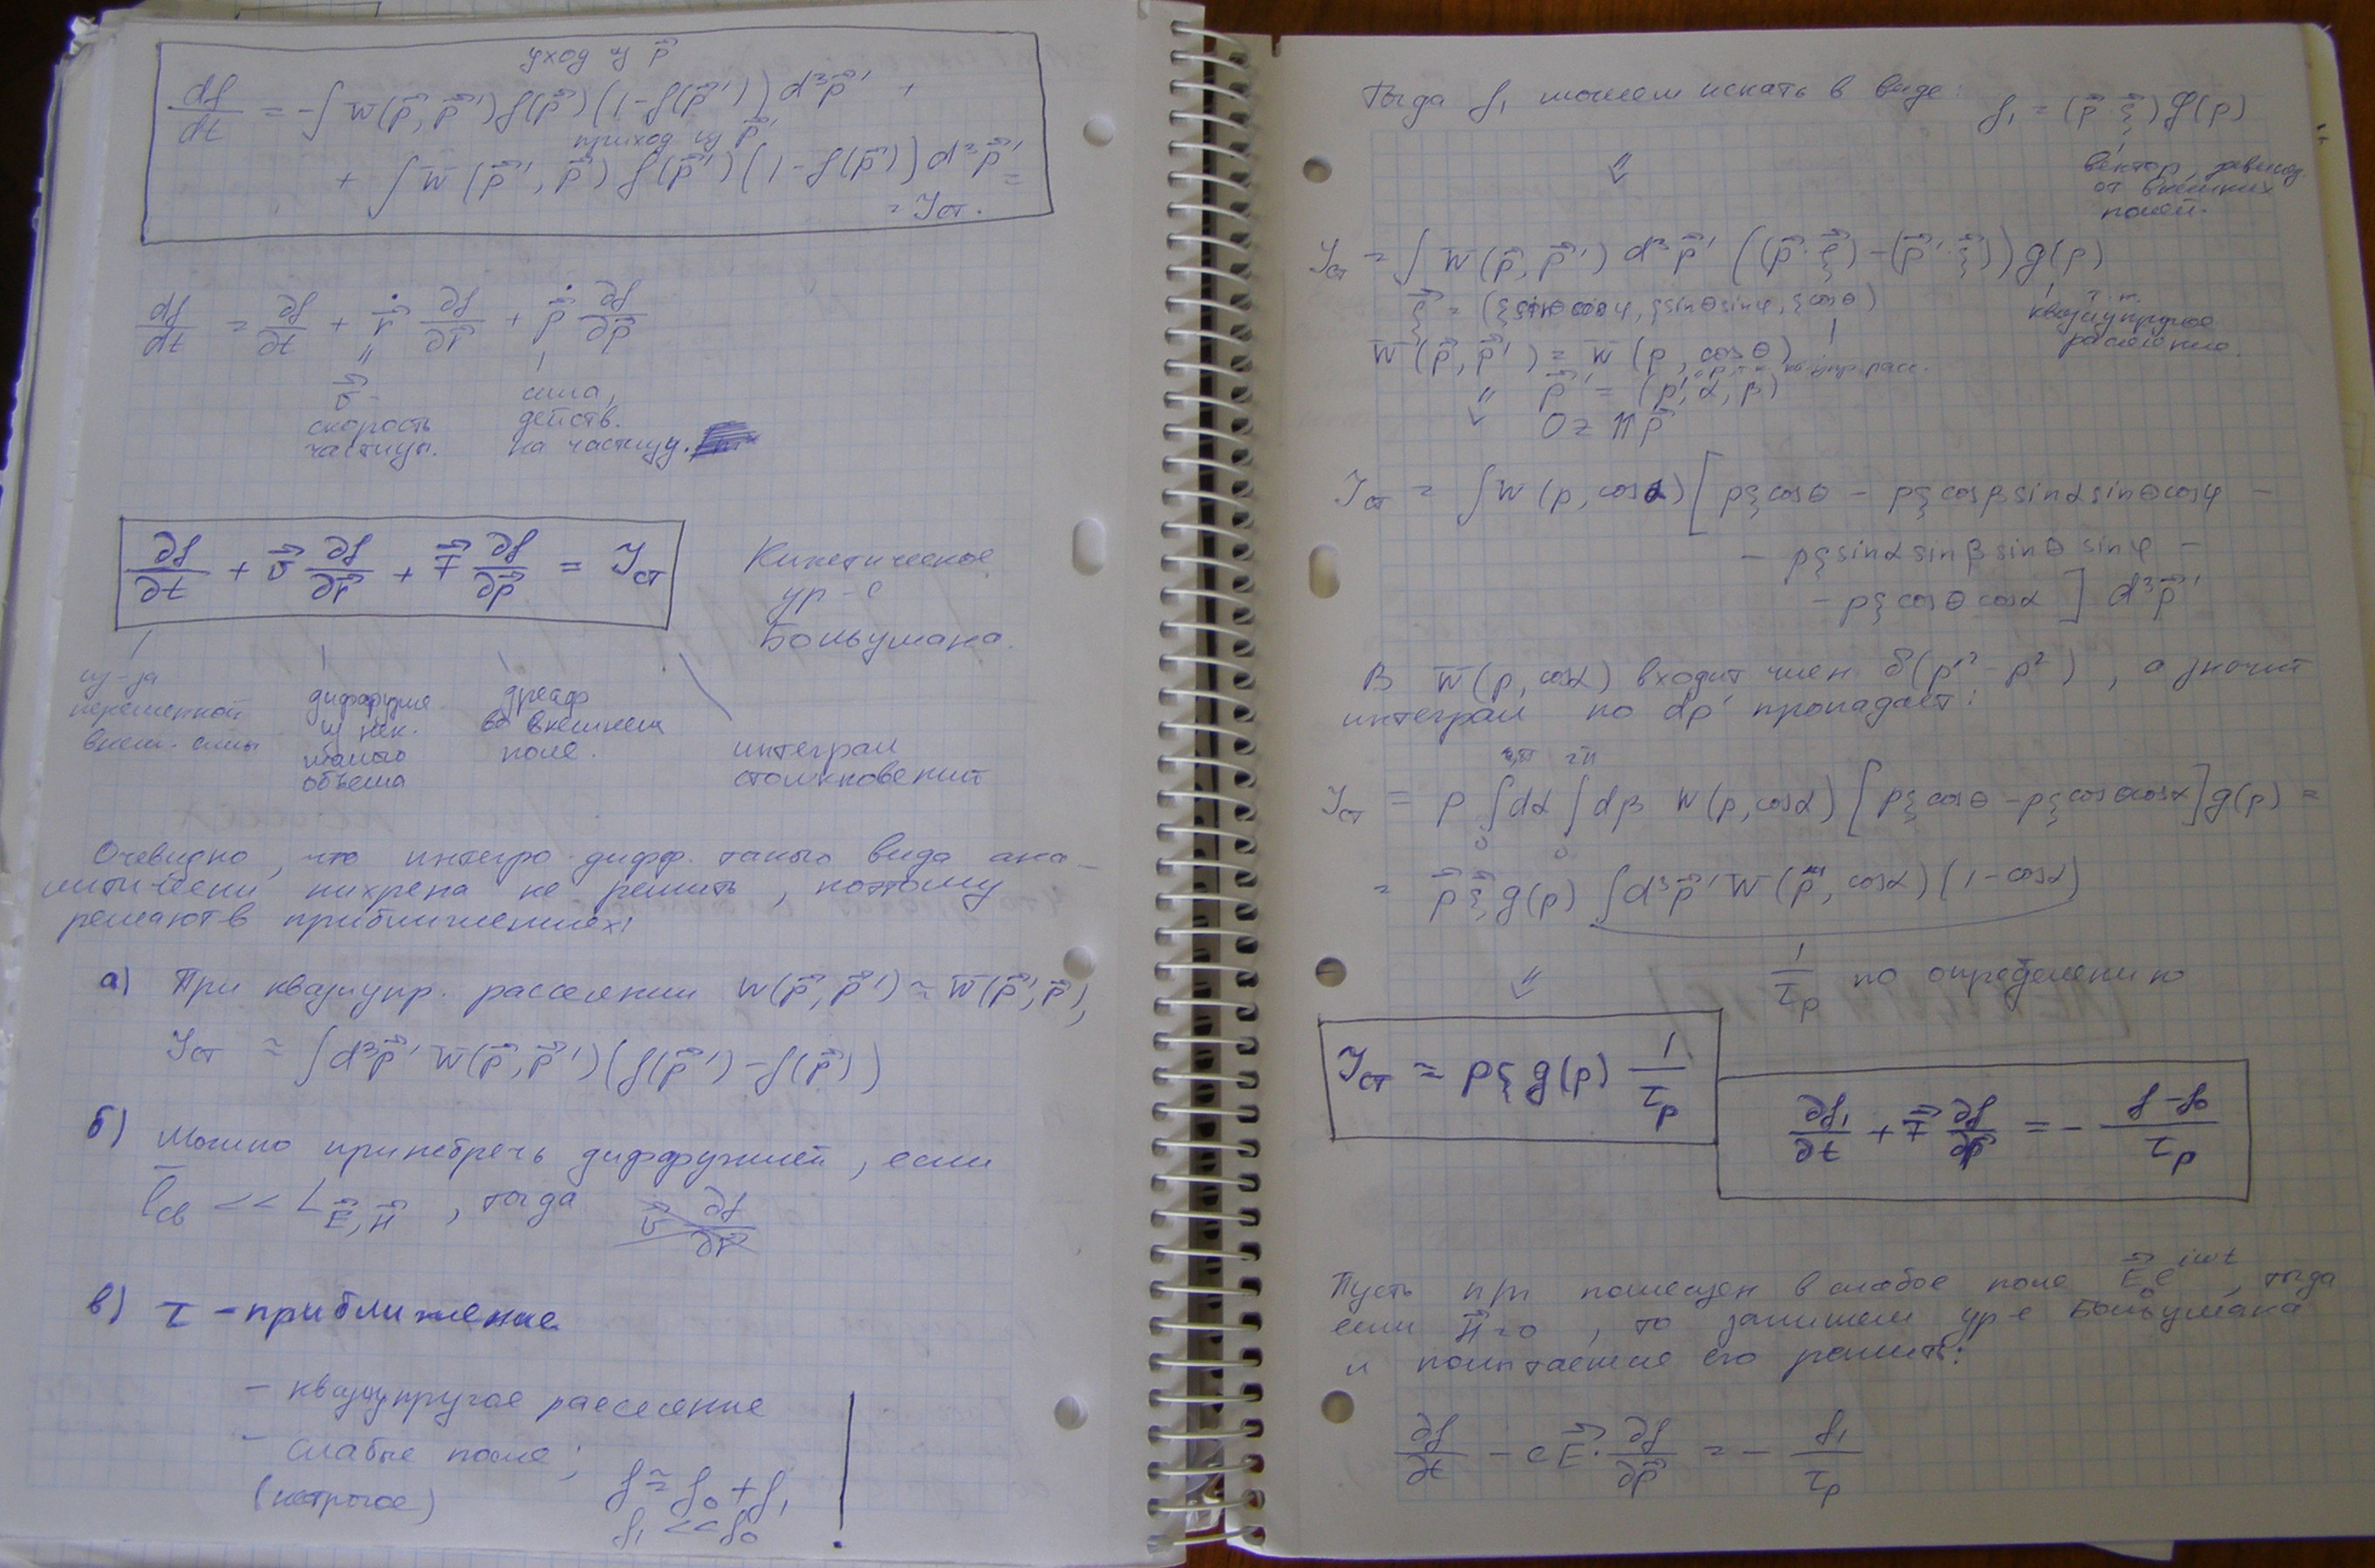 уход из p⃗
df/dt = -∫ W(p⃗, p⃗')f(p⃗)(1-f(p⃗')) d³p⃗' +
приход из p⃗'
+ ∫ W(p⃗', p⃗) f(p⃗')(1-f(p⃗)) d³p⃗' =
= Jст.
df/dt = ∂f/∂t + ṙ⃗ ∂f/∂r⃗ + ṗ⃗ ∂f/∂p⃗
v⃗ - сила,
скорость действ.
частицы. на частицу.
∂f/∂t + v⃗ ∂f/∂r⃗ + F⃗ ∂f/∂p⃗ = Jст
Кинетическое
ур-е
Больцмана.
из-за
переменной
внеш. силы
диффузия
из нек.
малого
объема
дрейф
во внешнем
поле.
интеграл
столкновений
Очевидно, что интегро-дифф. такого вида ана-
литически нихрена не решить, поэтому
решают в приближениях:
а) При квазиупр. рассеянии W(p⃗, p⃗') ≈ W(p⃗', p⃗),
Jст ≈ ∫d³p⃗' W(p⃗, p⃗')(f(p⃗')-f(p⃗))
б) Можно принебречь диффузией, если
lсв << L E⃗, H⃗ , тогда v⃗ ∂f/∂r⃗
в) τ - приближение
- квазиупругое рассеяние
- слабые поля;
(нестрогое) f ≈ f₀ + f₁
f₁ << f₀
Тогда f₁ можем искать в виде: f₁ = (p⃗ ξ⃗) g(p)
⇓
вектор, зависящ.
от внешних
полей.
Jст = ∫ W(p⃗, p⃗') d³p⃗' ((p⃗·ξ⃗)-(p⃗'·ξ⃗)) g(p)
ξ⃗ = (ξsinθcosφ, ξsinθsinφ, ξcosθ)
т.к.
квазиупругое
рассеяние.
W(p⃗, p⃗') = W(p, cosθ)
⇓ p⃗' = (p', α, β)
Oz ⇈ p⃗
Jст = ∫W(p, cosα)[pξcosθ - pξcosβsinαsinθcosφ -
- pξsinαsinβsinθsinφ -
- pξcosθcosα] d³p⃗'
В W(p, cosα) входит член δ(p'²-p²), а значит
интеграл по dp' пропадает:
Jст = p ∫dα ∫₀^2π dβ W(p, cosα)[pξcosθ-pξcosθcosα]g(p) =
= p⃗ξ⃗g(p) ∫d³p⃗' W(p⃗, cosα)(1-cosα)
⇓ 1/τp по определению
Jст ≈ pξg(p) 1/τp
∂f₁/∂t + F⃗ ∂f/∂p⃗ = - f-f₀/τp
Пусть п/п помещен в слабое поле E⃗₀e^iωt, тогда
если H⃗=0, то запишем ур-е Больцмана
и попытаемся его решить:
∂f/∂t - eE⃗·∂f/∂p⃗ = - f₁/τp